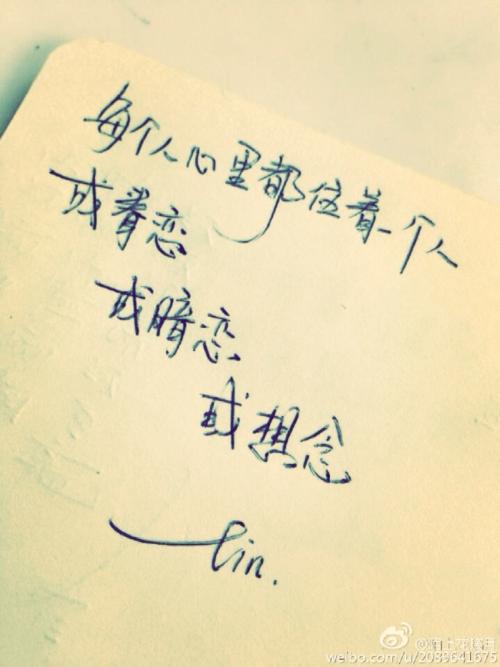 每个人心里都住着一个人
或眷恋
或暗恋
或想念
—lin.
weibo.com/u/2089641675